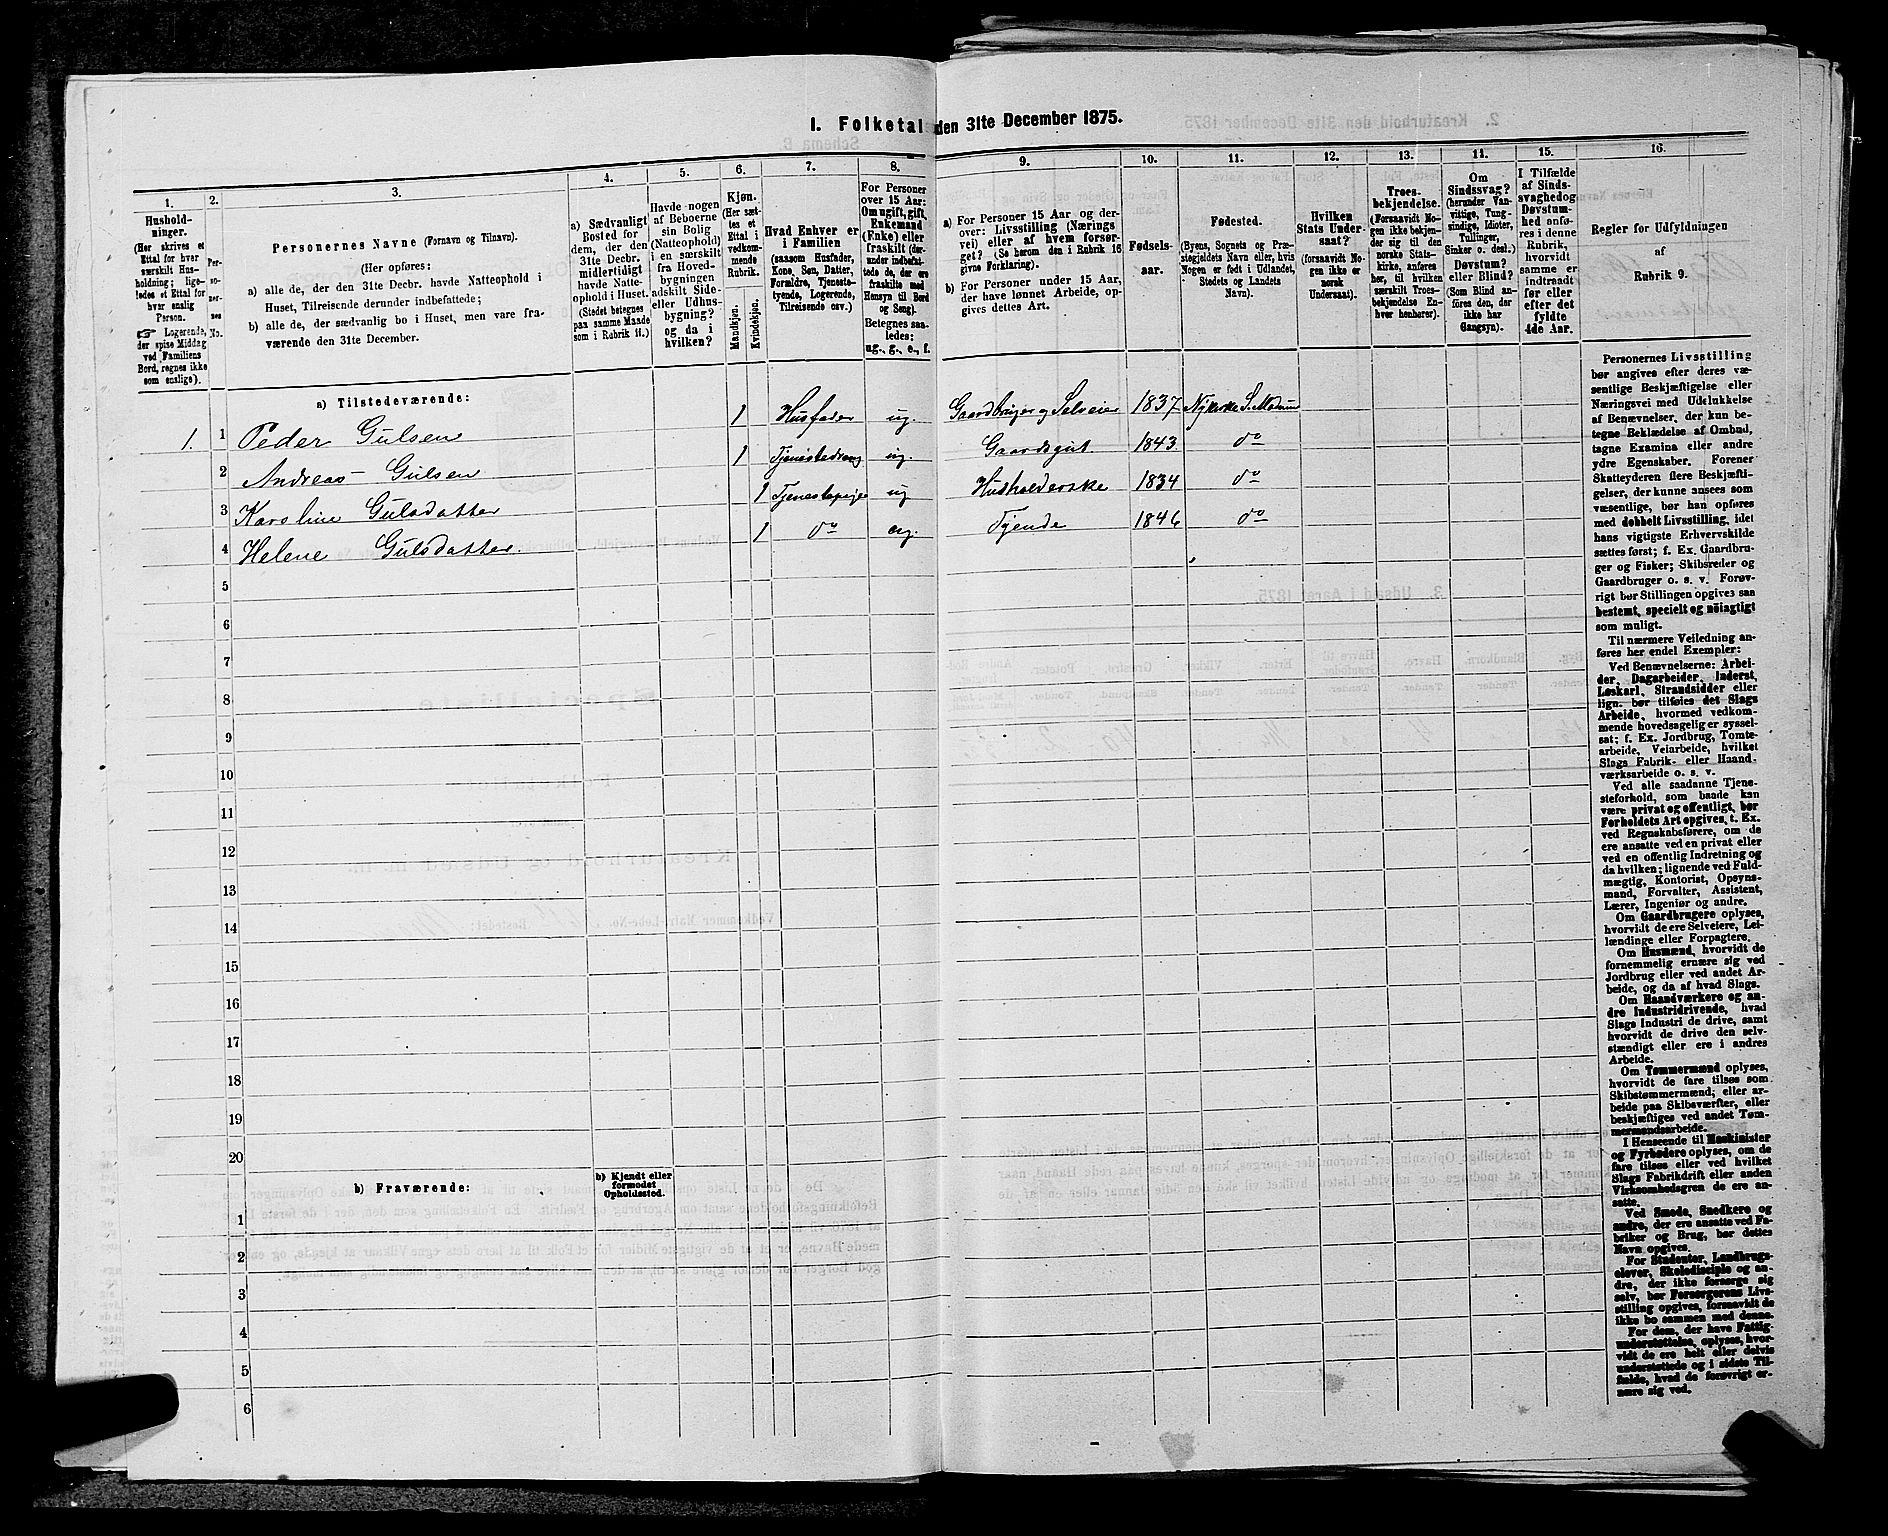 I. Folketal den 31te December 1875.
1. 2. 3. 4. 5. 6. 7. 8. 9. 10. 11. 12. 13. 14. 15. 16.
Hushold-
ninger.
(Her skrives et
Ettal for hver
særskilt Hus-
holdning; lige-
ledes et Ettal for
hver enslig
Person.
☞ Logerende,
der spise Middag
ved Familiens
Bord, regnes ikke
som enslige).
Per-
so-
ner-
nes
No.
Personernes Navne (Fornavn og Tilnavn).
(Her opføres:
a) alle de, der den 31te Decbr. havde Natteophold i
Huset, Tilreisende derunder indbefattede;
b) alle de, der sædvanlig bo i Huset, men vare fra-
værende den 31te December.
a) Sædvanligt
Bosted for
dem, der den
31te Decbr.
midlertidigt
havde Natte-
ophold i Huset.
(Stedet betegnes
paa samme Maade
som i Rubrik 11.)
Havde nogen
af Beboerne
sin Bolig
(Natteophold)
i en særskilt
fra Hoved-
bygningen
adskilt Side-
eller Udhus-
bygning?
og da i
hvilken?
Kjøn.
(Her sæt-
tes et
Ettal i
vedkom-
mende
Rubrik.
Mandkjøn.
Kvindekjøn.
Hvad Enhver er
i Familien
(saasom Husfader,
Kone, Søn, Datter,
Forældre, Tjeneste-
tyende, Logerende,
Tilreisende osv.)
For Personer
over 15 Aar:
Om ugift, gift,
Enkemand
(Enke) eller
fraskilt (der-
under indbefat-
tede de, der ere
fraskilte med
Hensyn til Bord
og Seng).
Betegnes saa-
ledes:
ug., g., e., f.
a) For Personer 15 Aar og der-
over: Livsstilling (Nærings
vei) eller af hvem forsør-
get? (Se herom den i Rubrik 16
givne Forklaring).
b) For Personer under 15 Aar,
der have lønnet Arbeide, op-
gives dettes Art.
Fødsels-
aar.
Fødested.
(Byens, Sognets og Præ-
stegjeldets Navn eller, hvis
Nogen er født i Udlandet,
Stedets og Landets
Navn).
Hvilken
Stats Under-
saat?
(forsaavidt No-
gen ikke er
norsk
Undersaat).
Troes-
bekjendelse.
(Forsaavidt No-
gen ikke bekjen-
der sig til den
norske Stats-
kirke, anføres
her, til hvilken
særskilt Troes-
bekjendelse En-
hver henhører).
Om
Sindssvag?
(herunder Van-
vittige, Tung-
sindige, Idioter,
Tullinger,
Sinker o. desl.)
Døvstum?
eller Blind?
(Som Blind an-
føres den, der
ikke har
Gangsyn).
I Tilfælde
af Sinds-
svaghed og
Døvstum-
hed anfø-
res i denne
Rubrik,
hvorvidt
samme er
indtraadt
før eller
efter det
fyldte
4de Aar.
Regler for Udfyldningen
af
Rubrik 9.
a) Tilstedeværende:
1. 1 Peder Gulsen 1 Husfader ug. Gaardbruger og Selveier 1837 Nykirke S. Modum
2 Andreas Gulsen 1 Tjenestedreng ug. Gaardsgut 1843. do
3 Karoline Gulsdatter 1 Tjenestepige ug Husholderske 1834 do
4 Helene Gulsdatter. 1 do ug. Tyende 1846 do
5
6
7
8
9
10
11
12
13
14
15
16
17
18
19
20
b) Fraværende:
b) Kjendt eller
formodet
Opholdssted.
1
2
3
4
5
6
Personernes Livsstilling
bør angives efter deres væ-
sentlige Beskjæftigelse eller
Næringsvei med Udelukkelse
af Benævnelser, der kun be-
tegne Beklædelse af Ombud,
tagne Examina eller andre
ydre Egenskaber. Forener
Skatteyderen flere Beskjæfti-
gelser, der kunne ansees som
væsentlige, bør han opføres
med dobbelt Livsstilling, idet
hans vigtigste Erhvervskilde
sættes først; f. Ex. Gaardbru-
ger og Fisker; Skibsreder og
Gaardbruger o. s. v. Forøv-
rigt bør Stillingen opgives saa
bestemt, specielt og nöiagtigt
som muligt.
Til nærmere Veiledning an-
føres her endel Exempler:
Ved Benævnelserne: Arbei-
der, Dagarbeider, Inderst,
Løskarl, Strandsidder eller
lign. bør tilføies det Slags
Arbeide, hvormed vedkom-
mende hovedsagelig er syssel-
sat; f. Ex. Jordbrug, Tomte-
arbeide, Veiarbeide, hvilket
Slags Fabrik- eller Haand-
værksarbeide o. s. v.
Ved alle saadanne Tjene-
steforhold, som baade kan
være privat og offentligt, bør
Forholdets Art opgives, t. Ex.
ved Regnskabsførere, om de
ere ansatte ved en privat eller
ved en offentlig Indretning og
da hvilken; lignende ved Fuld-
mægtig, Kontorist, Opsyns-
mand, Forvalter, Assistent,
Lærer, Ingeniør og andre.
Om Gaardbrugere oplyses,
hvorvidt de ere Selveiere, Lei-
lændinge eller Forpagtere.
Om Husmænd, hvorvidt de
fornemmelig ernære sig ved
Jordbrug eller ved andet Ar-
beide, og da af hvad Slags.
Om Haandværkere og an-
dre Industridrivende, hvad
Slags Industri de drive, samt
hvorvidt de drive den selv-
stændigt eller ere i andres
Arbeide.
Om Tømmermænd oplyses,
hvorvidt de fare tilsøs som
Skibstømmermænd; eller ar-
beide paa Skibsværfter, eller
beskjæftiges ved andet Tøm-
mermandsarbeide.
I Henseende til Maskinister
og Fyrbødere oplyses, om de
fare tilsøs eller ved hvilket
Slags Fabrikdrift eller anden
Virksomhedsgren de ere an-
satte.
Ved Smede, Snedkere og
andre, der ere ansatte ved Fa-
briker og Brug, bør dettes
Navn opgives.
For Studenter, Landbrugs-
elever, Skoledisciple og an-
dre, der ikke forsørge sig
selv, bør Forsørgerens Livs-
stilling opgives, forsaavidt de
ikke bo sammen med denne.
For dem, der have Fattig-
understøttelse, oplyses, hvor-
vidt de ere helt eller delvis
understøttede og i sidste Til-
fælde, hvad de forøvrigt er-
nære sig ved.